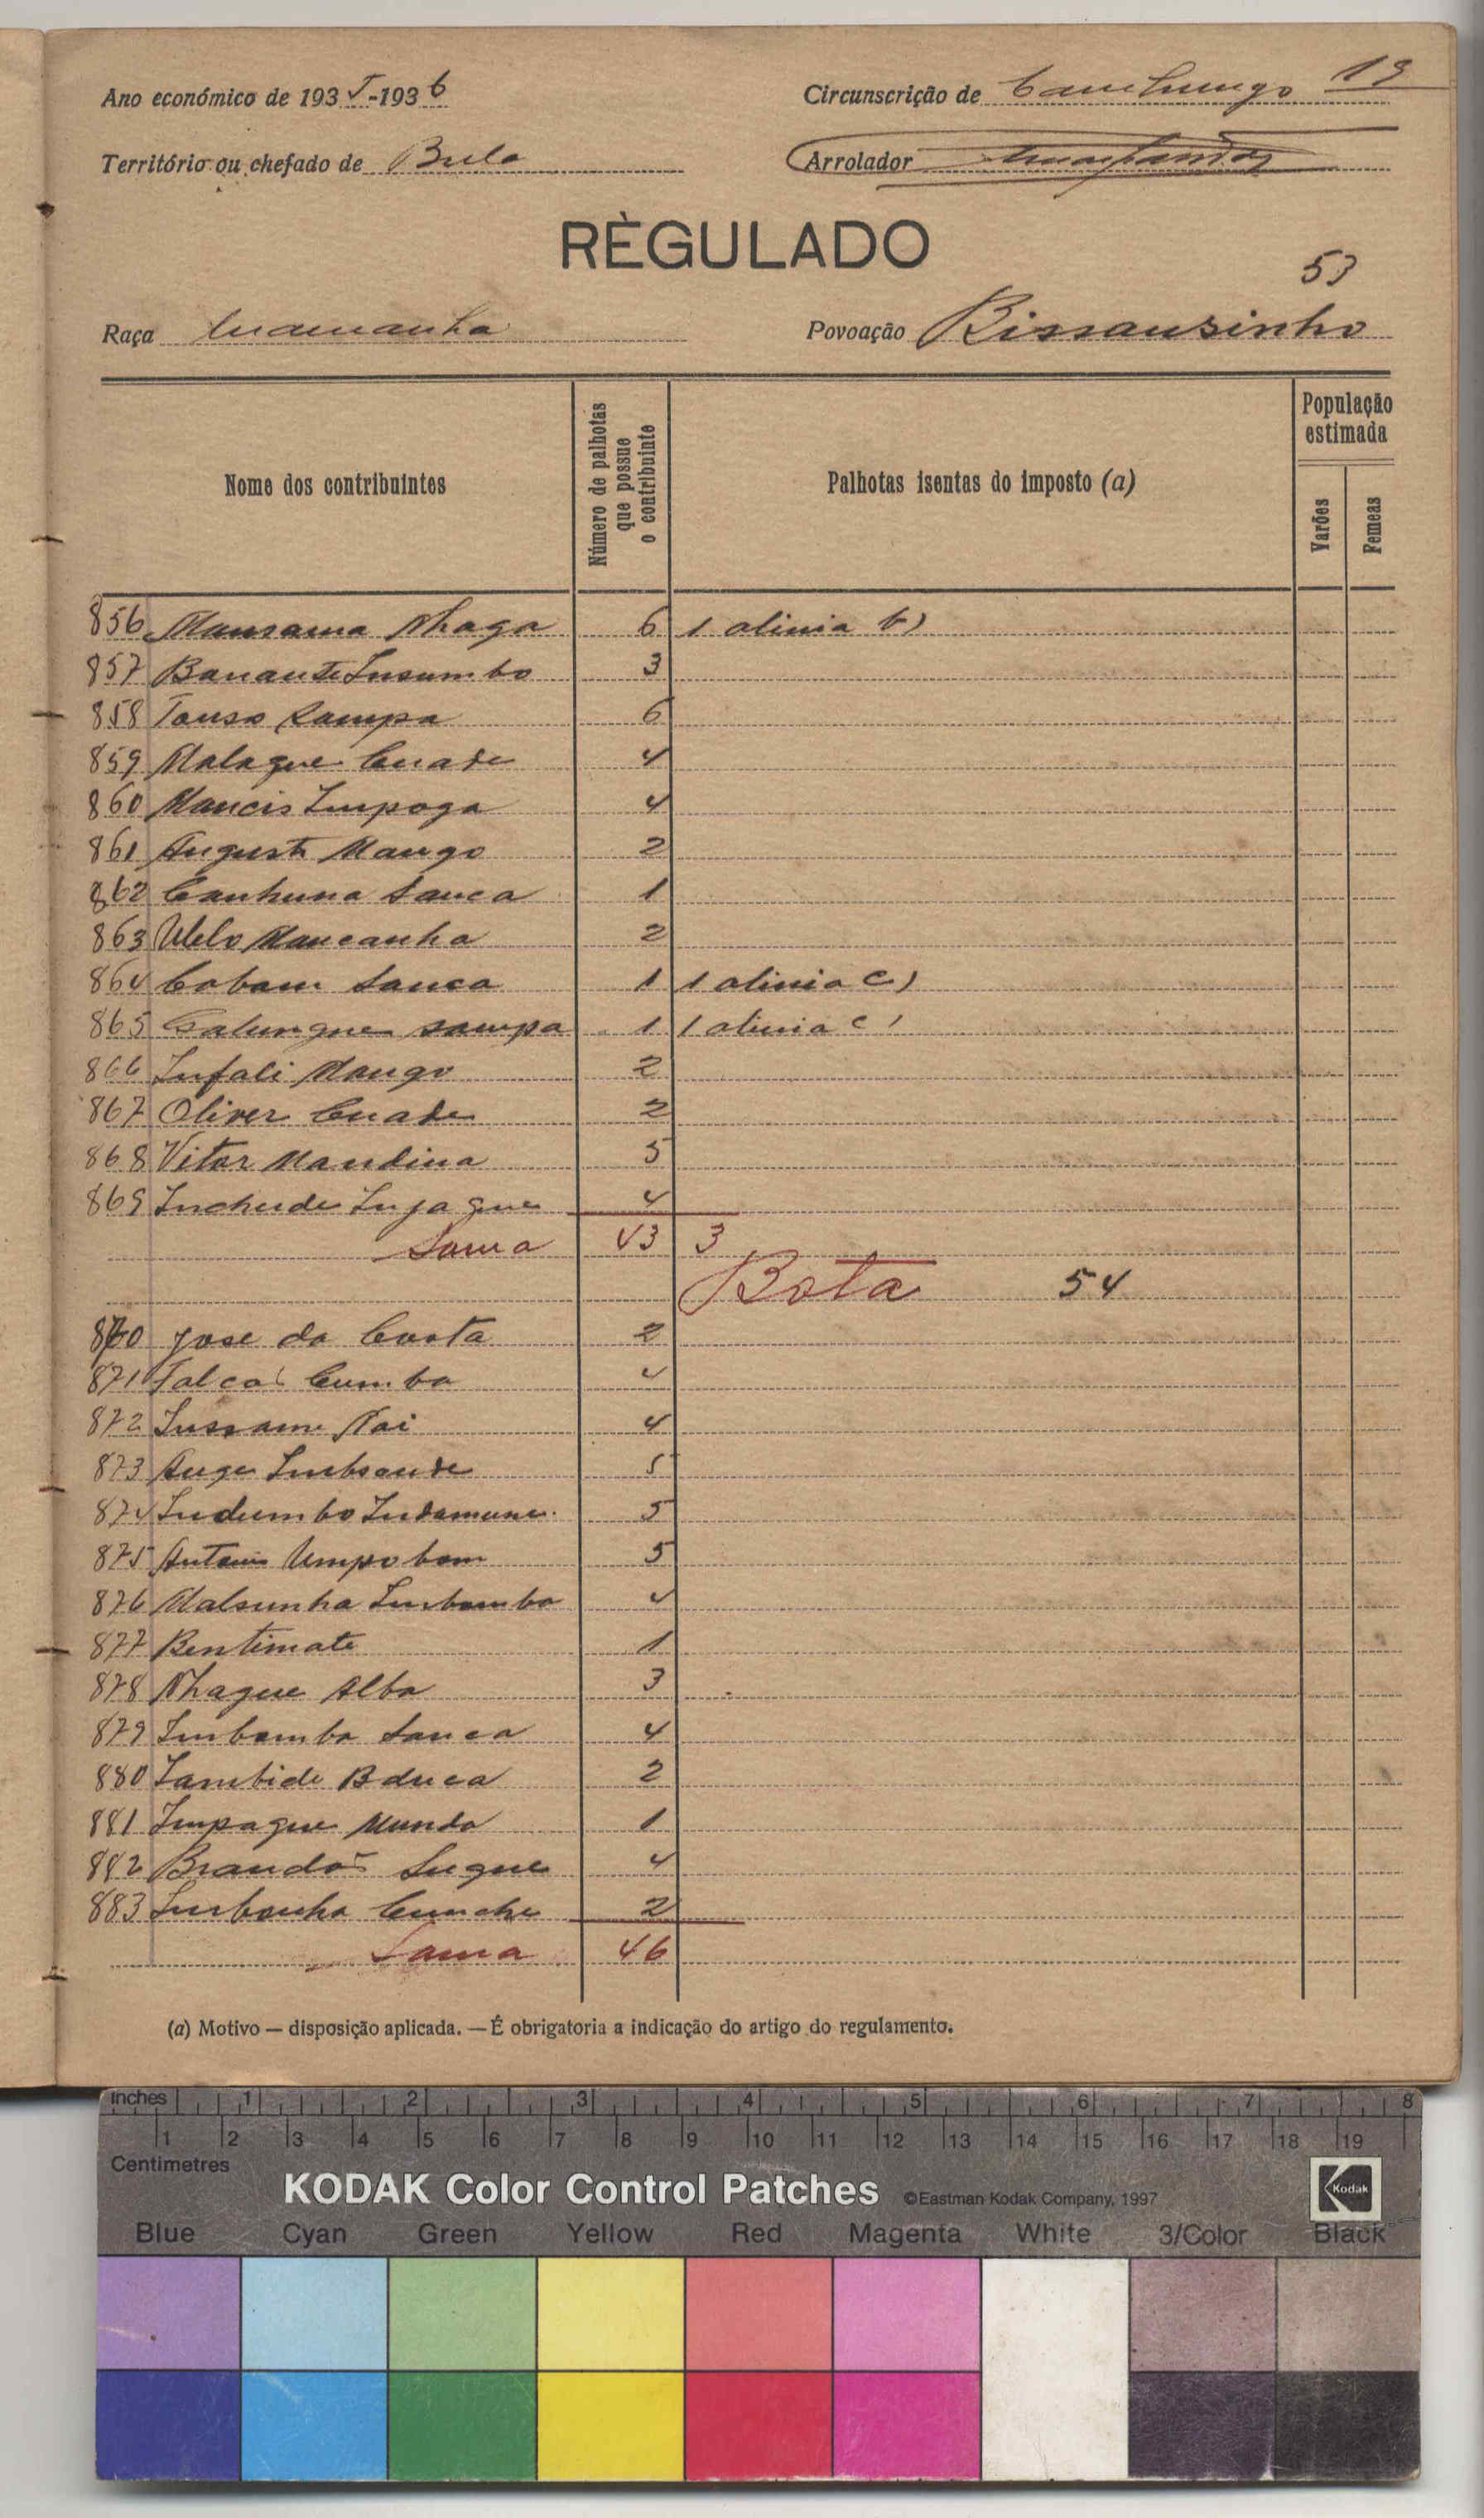 19
Ano económico de 1935-1936
Circunscrição de Canchungo
Território ou chefado de Bula
Arrolador
RÈGULADO
53
Raça Mancanha
Povoação Bissausinho
Nome dos contribuintes
Número de palhotas que possue o contribuinte
Palhotas isentas do imposto (a)
População estimada
Varões
Femeas
856 Mansama Nhaga 6 1 alinia b)
857 Banante Insumbo 3
858 Tonso Sampa 6
859 Malaque Cuade 4
860 Mancis Impoga 4
861 Augusto Mango 2
862 Canhuna Sanca 1
863 Ulelo Mancanha 2
864 Cobam Sanca 1 1 alinia c)
865 Galungue Sampa 1 1 alinia c)
866 Infali Mango 2
867 Oliver Cuade 2
868 Vitor Mandina 5
869 Inchude Injague 4
Soma 43 3
Bota 54
870 Jose da Costa 2
871 Falcaõ Cumba 4
872 Insame Nai 4
873 Auge Imbsonde 5
874 Indumbo Indamune 5
875 Antonio Umpobom 5
876 Malsunha Imbomba 4
877 Bentimate 1
878 Nhague Alba 3
879 Imbomba Sanca 4
880 Iambide Bduca 2
881 Impague Munda 1
882 Brandaõ Iugue 4
883 Imbonha Cunche 2
Soma 46
(a) Motivo — disposição aplicada. — É obrigatoria a indicação do artigo do regulamento.
inches 1 2 3 4 5 6 7 8
1 2 3 4 5 6 7 8 9 10 11 12 13 14 15 16 17 18 19
Centimetres
KODAK Color Control Patches ©Eastman Kodak Company, 1997 Kodak
Blue Cyan Green Yellow Red Magenta White 3/Color Black